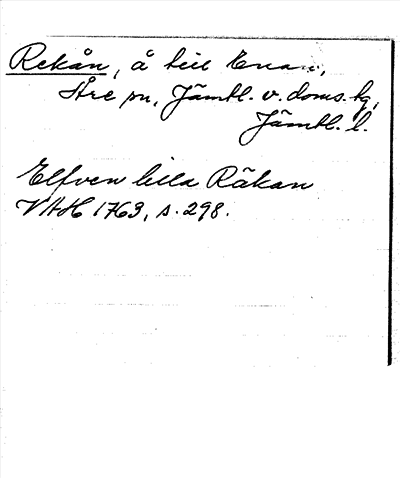 Rekån, å till Enan,
Åre sn, Jämtl. v. doms. hg,
Jämtl. l.
Elfven lilla Räkan
VAH 1763, s. 298.